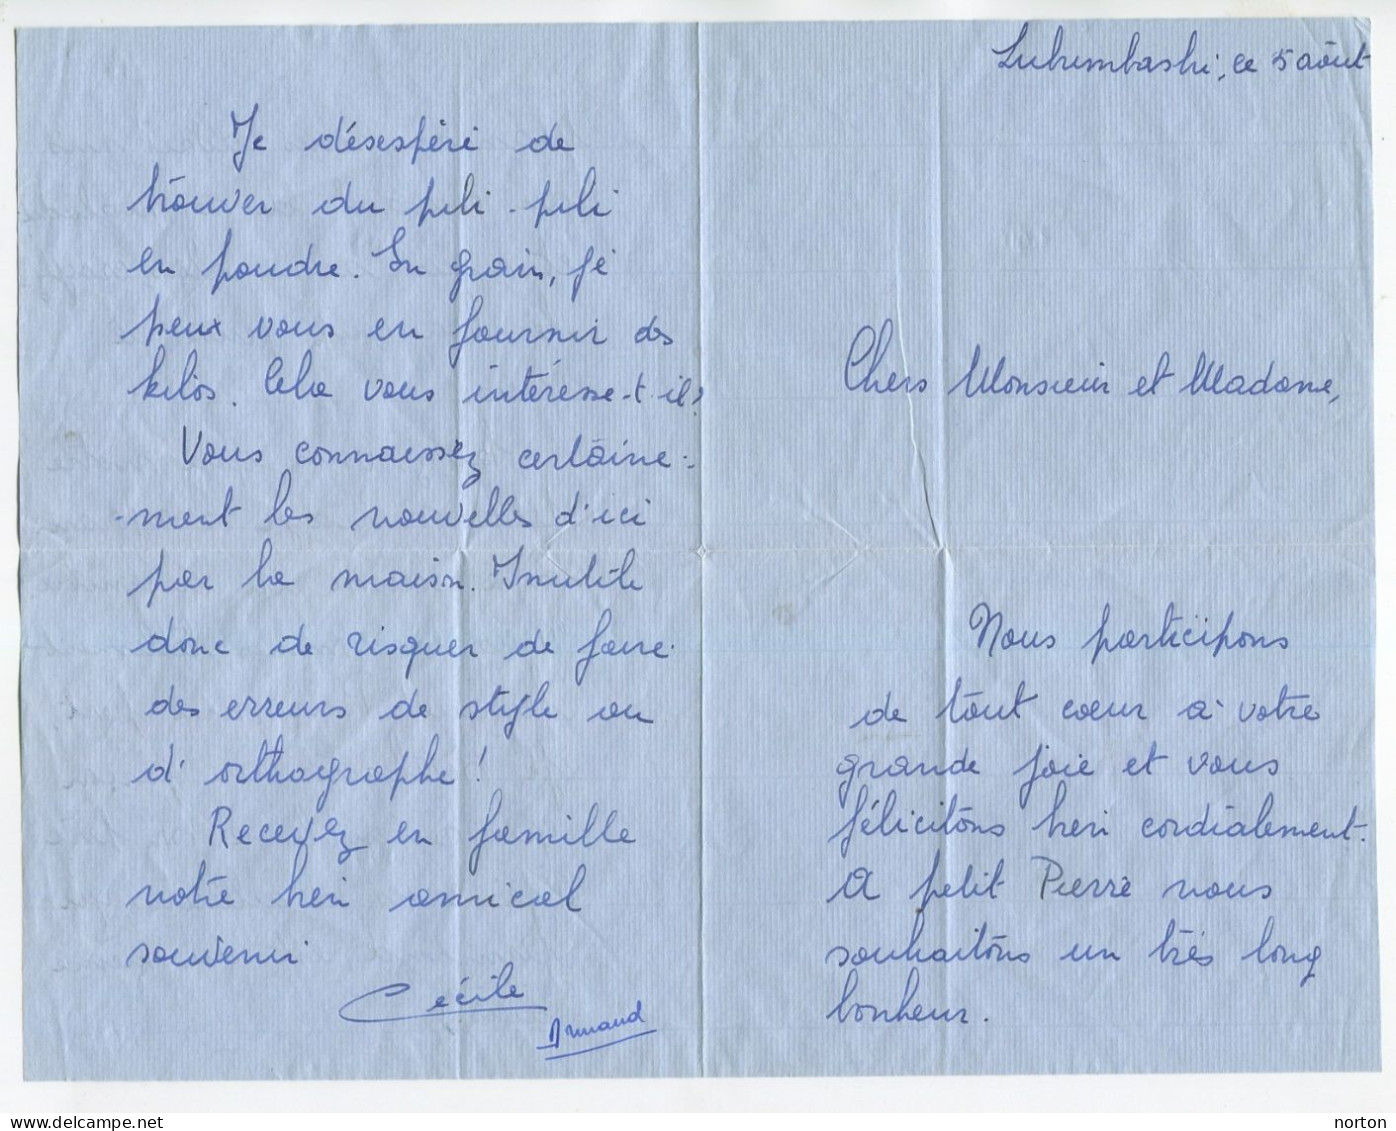 Lubumbashi, ce 5 août
Chers Monsieur et Madame,
Nous participons
de tout cœur à votre
grande joie et vous
félicitons bien cordialement.
A petit Pierre nous
souhaitons un très long
bonheur.
Je désespère de
trouver du pili-pili
en poudre. En grain, je
peux vous en fournir des
kilos. Cela vous intéresse-t-il?
Vous connaissez certaine-
-ment les nouvelles d'ici
par la maison. Inutile
donc de risquer de faire
des erreurs de style ou
d'orthographe!
Recevez en famille
notre bien amical
souvenir
Cécile
Armand
www.delcampe.net
norton